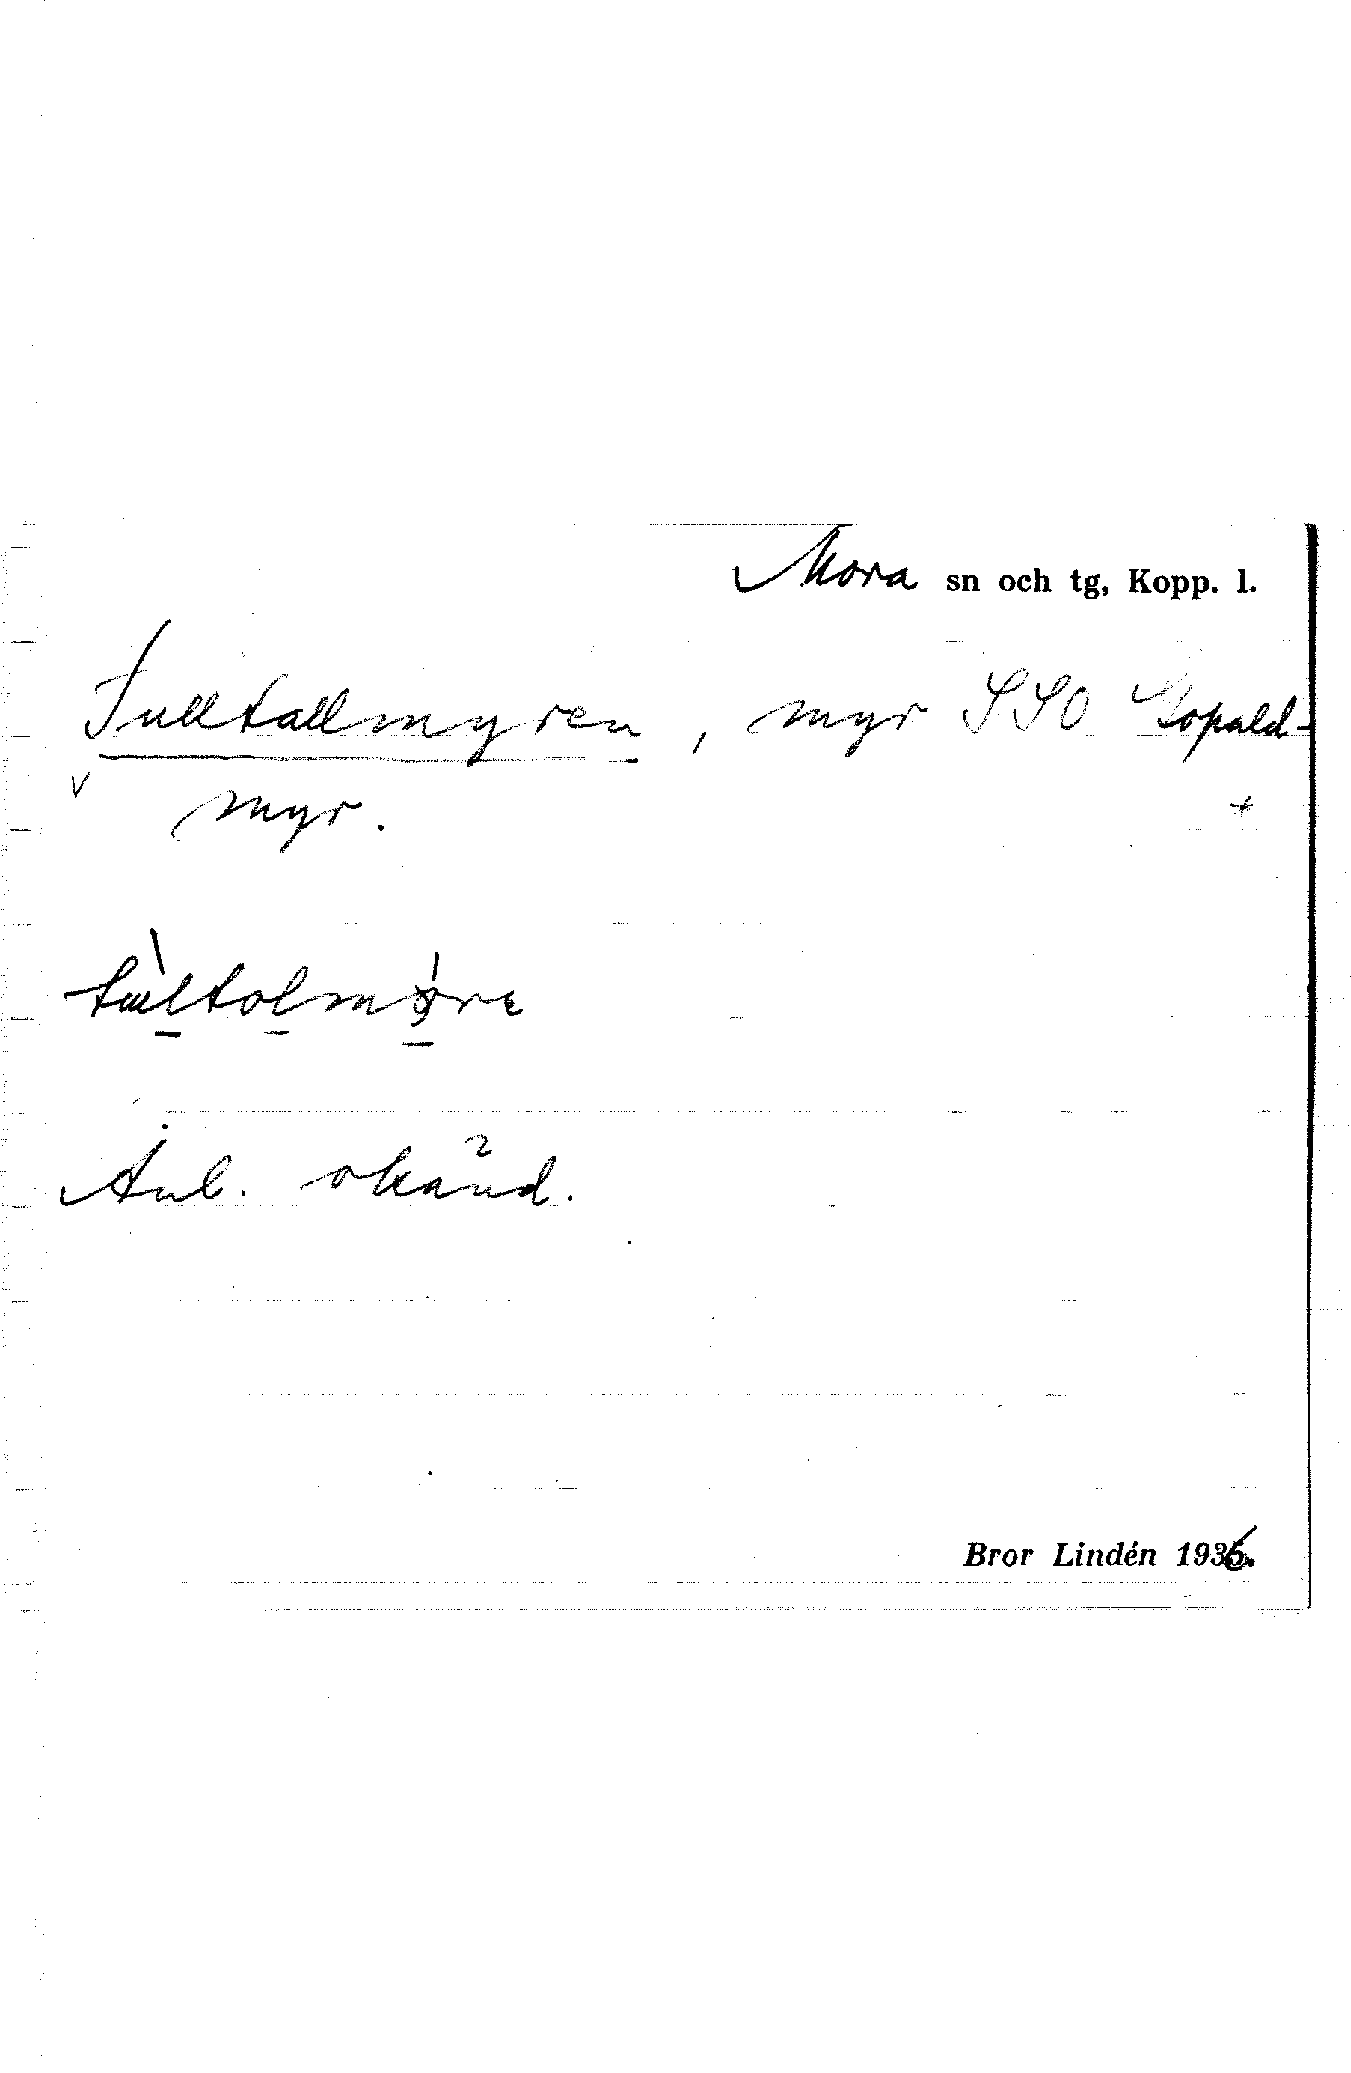 Mora sn och tg, Kopp. l.
Tulltallmyren, myr SSO Gopald-
myr.
Anl. okänd.
Bror Lindén 1936.